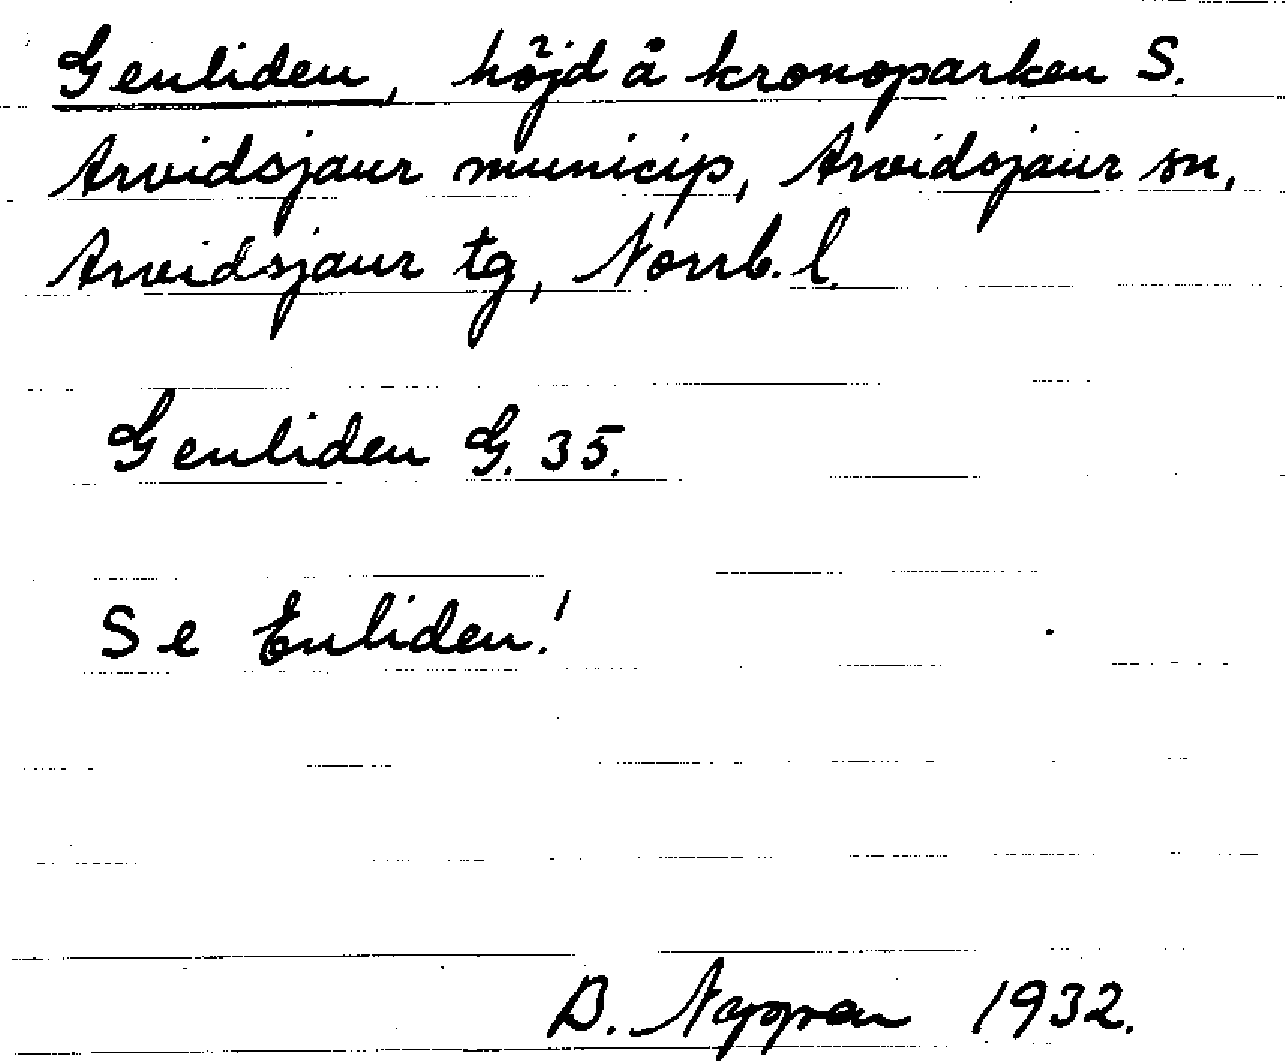 Genliden, höjd å kronoparken S.
Arvidsjaur municip, Arvidsjaur sn,
Arvidsjaur tg, Norrb. l.
Genliden G. 35.
Se Enliden!
B. 1932.